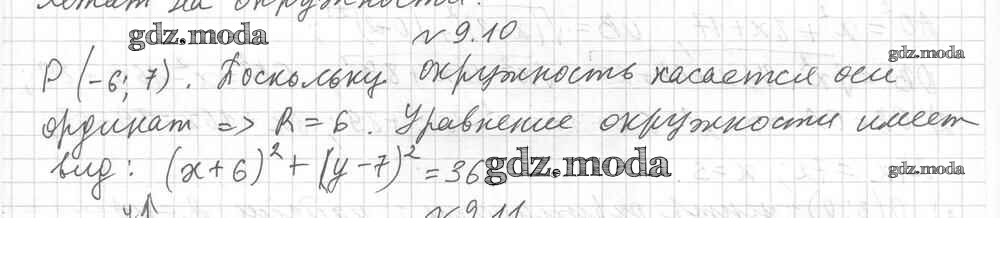 лежат на окружности.
№ 9.10
gdz.moda
gdz.moda
P (-6; 7). Поскольку окружность касается оси
ординат => R = 6. Уравнение окружности имеет
вид: (x+6)² + (y-7)² = 36
gdz.moda
gdz.moda
y
№ 9.11